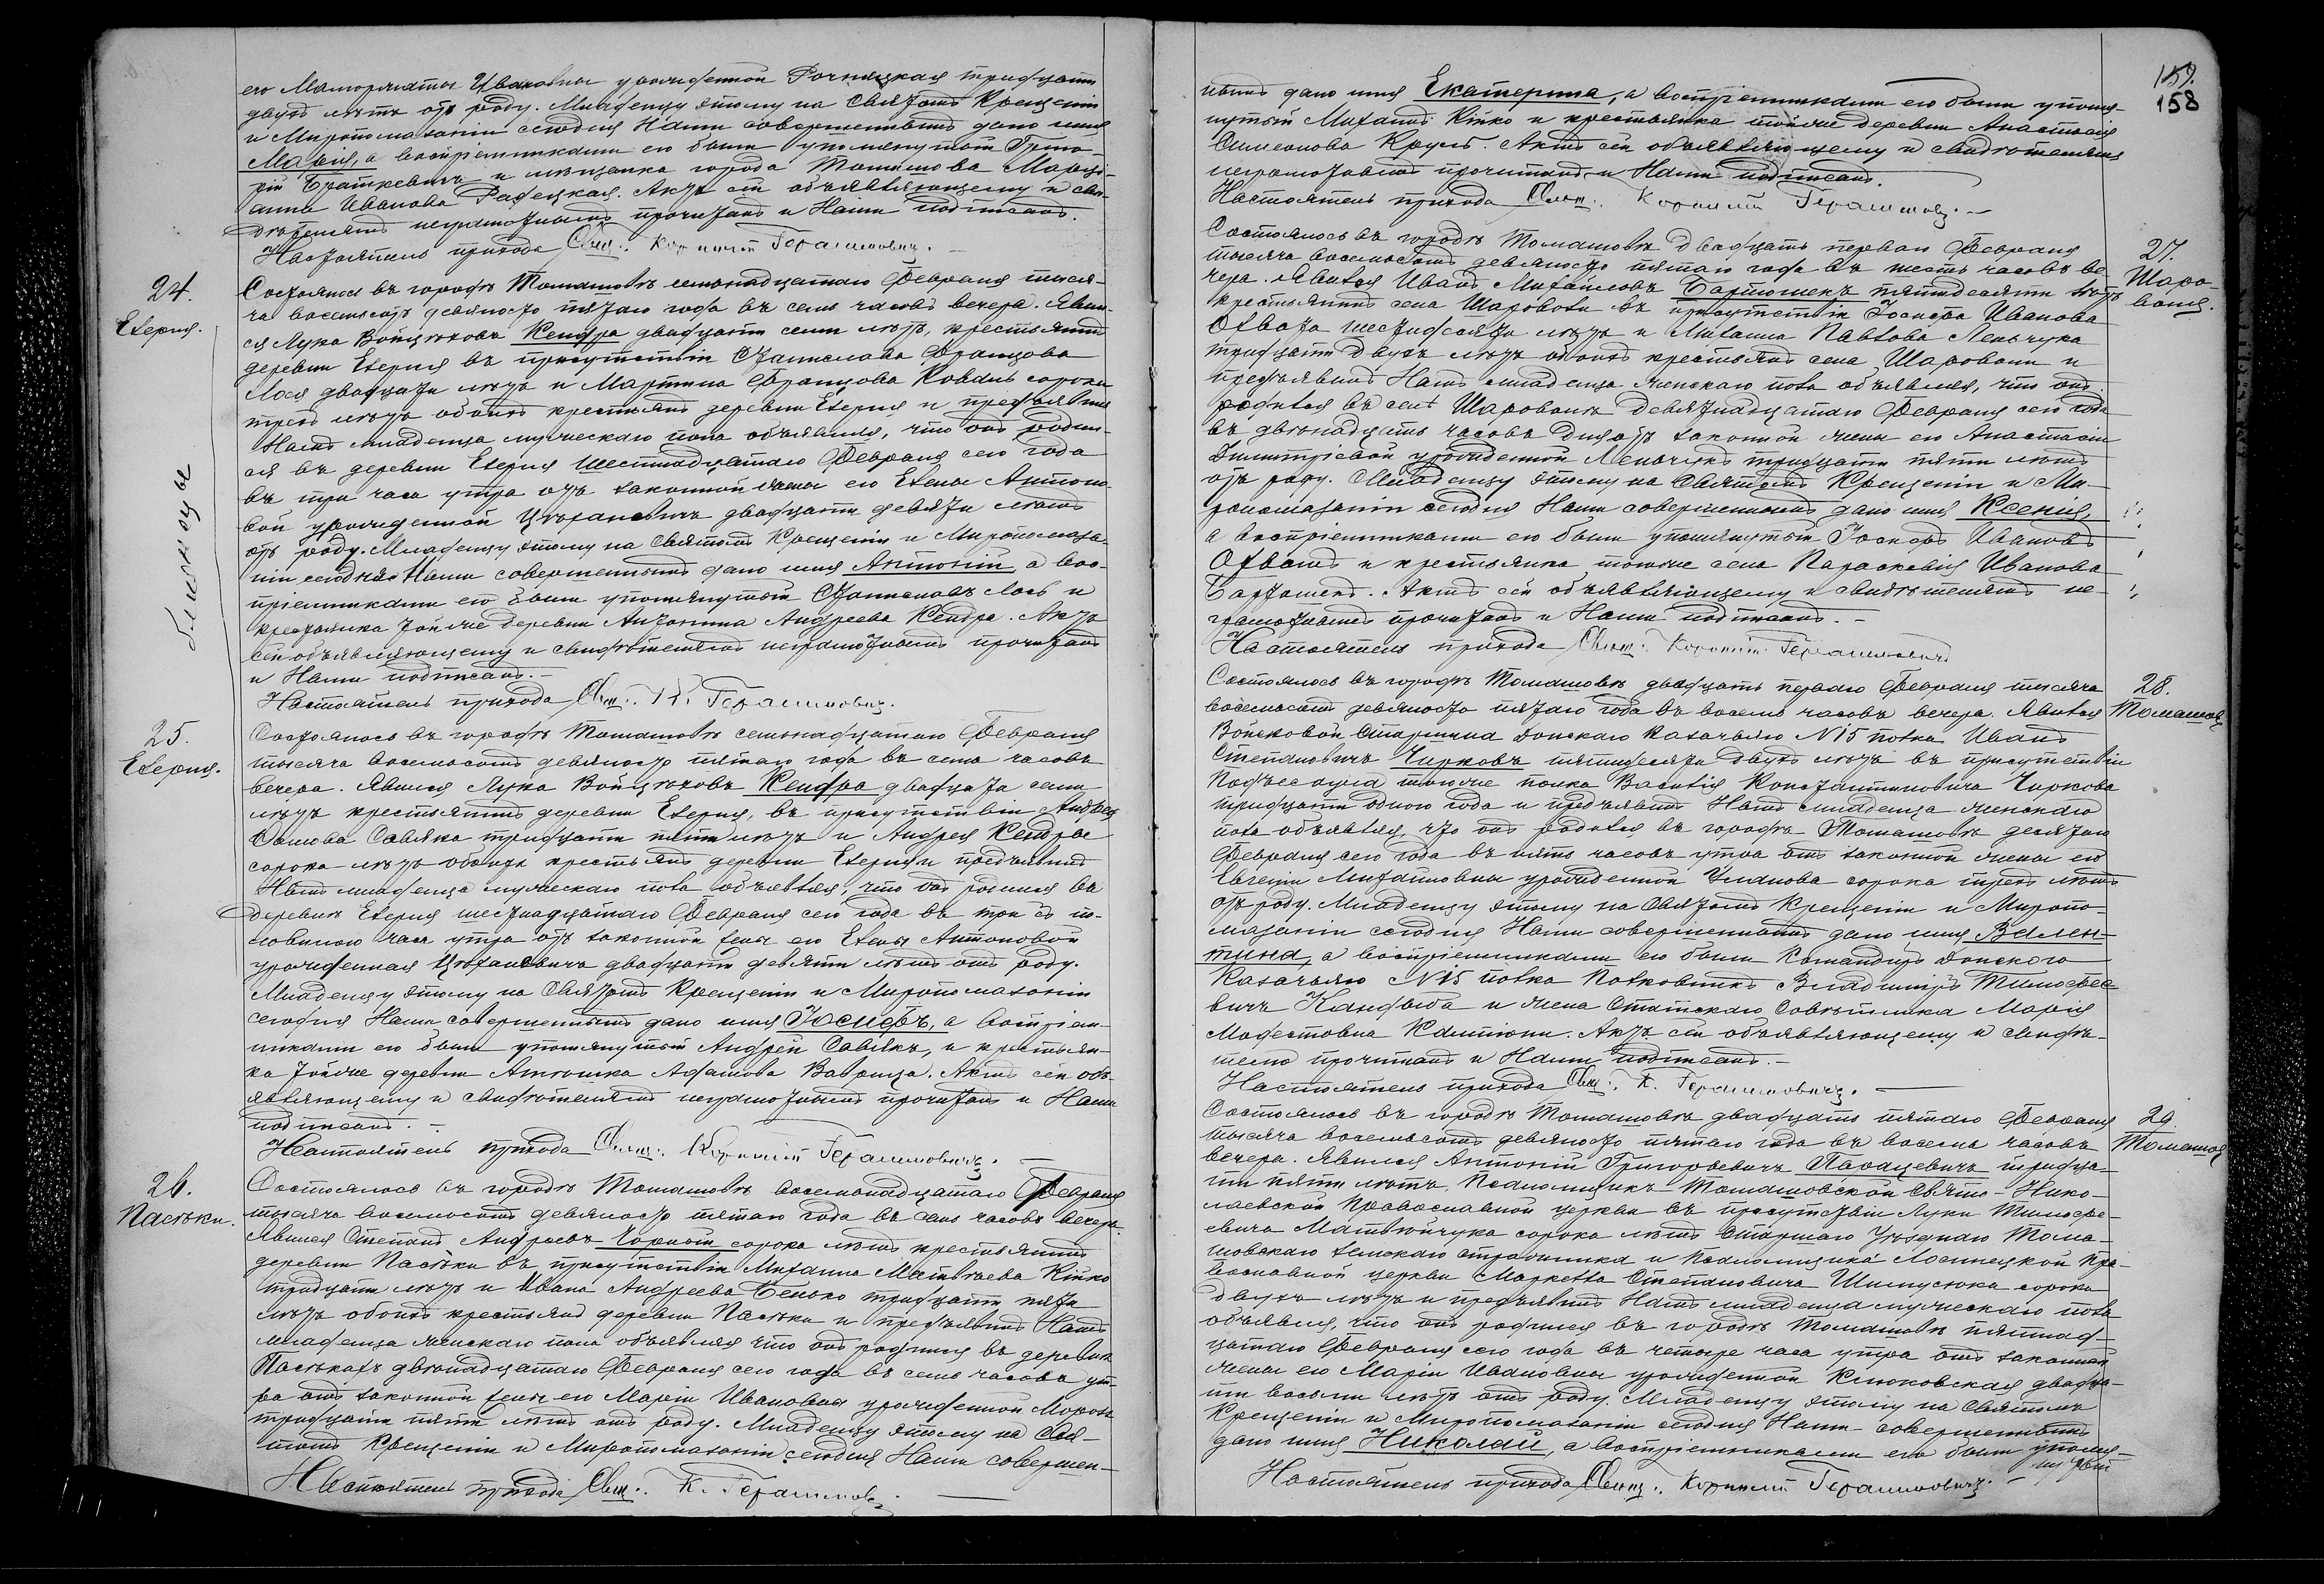 его Маргариты Ивановны урожденной Рачицкая тридцати
двухъ лѣтъ отъ роду. Младенцу этому на Святомъ Крещеніи
и Миропомазаніи сегодня Нами совершенныхъ дано имя
Марія, а воспріемниками его были упомянутый Григо-
рій Браткевичъ и мѣщанка города Томашова Марці-
анна Иванова Радецкая. Актъ сей объявляющему и сви-
дѣтелямъ неграмотнымъ прочитанъ и Нами подписанъ.
Настоятель прихода Свящ: Корнилій Герасимовичъ. –
24.
Езерня.
близнецы
Состоялось въ городѣ Томашовѣ семнадцатаго Февраля тыся-
ча восемьсотъ девяносто пятаго года въ семь часовъ вечера. Явил-
ся Лука Войцѣховъ Кендра двадцати семи лѣтъ, крестьянинъ
деревни Езерня въ присутствіи Станислава Францова
Лося двадцати лѣтъ и Мартина Францова Коваль сорока
трехъ лѣтъ обоихъ крестьянъ деревни Езерня и предъявилъ
Намъ младенца мужескаго пола объявляя, что онъ родил-
ся въ деревни Езерня шестнадцатаго Февраля сего года
въ три часа утра отъ законной жены его Елены Антоно-
вой урожденной двадцати девяти лѣтъ
отъ роду. Младенцу этому на Святомъ Крещеніи и Миропомаза-
ніи сегодня Нами совершенныхъ дано имя Антоній, а вос-
пріемниками его были упомянутый Станиславъ Лось и
крестьянка тойже деревни Антонина Андреева Кендра. Актъ
сей объявляющему и свидѣтелямъ неграмотнымъ прочитанъ
и Нами подписанъ. –
Настоятель прихода Свящ: К. Герасимовичъ.
25.
Езерня.
Состоялось въ городѣ Томашовѣ семнадцатаго Февраля
тысяча восемьсотъ девяносто пятаго года въ семь часовъ
вечера. Явился Лука Войцѣховъ Кендра двадцати семи
лѣтъ крестьянинъ деревни Езерня, въ присутствіи Андрея
Савляка тридцати пяти лѣтъ и Андрея Кендры
сорока лѣтъ обоихъ крестьянъ деревни Езерня и предъявилъ
Намъ младенца мужескаго пола объявляя, что онъ родился въ
деревнѣ Езерня шестнадцатаго Февраля сего года въ три съ по-
ловиною часа утра отъ законной жены его Елены Антоновой
урожденная двадцати девяти лѣтъ отъ роду.
Младенцу этому на Святомъ Крещеніи и Миропомазаніи
сегодня Нами совершенныхъ дано имя Іосифъ, а воспріем-
никами его были упомянутый Андрей Савлякъ, и крестьян-
ка тойже деревни Адамова Ваврица. Актъ сей объ-
являющему и свидѣтелямъ неграмотнымъ прочитанъ и Нами
подписанъ. –
Настоятель прихода Свящ: Корнилій Герасимовичъ. –
26.
Пасѣки.
Состоялось въ городѣ Томашовѣ восемнадцатаго Февраля
тысяча восемьсотъ девяносто пятаго года въ семь часовъ вечера.
Явился Степанъ Андреевъ Горный сорока лѣтъ крестьянинъ
деревни Пасѣки въ присутствіи Михаила Матвѣева Кійко
тридцати лѣтъ и Ивана Андреева Бенько тридцати пяти
лѣтъ обоихъ крестьянъ деревни Пасѣки и предъявилъ Намъ
младенца женскаго пола объявляя что онъ родился въ деревнѣ
Пасѣкахъ двѣнадцатаго Февраля сего года въ семь часовъ ут-
ра отъ законной жены его Маріи Ивановой урожденной Мороз
тридцати пяти лѣтъ отъ роду. Младенцу этому на Свя-
томъ Крещеніи и Миропомазаніи сегодня Нами совершен-
Настоятель прихода Свящ: К. Герасимовичъ. –
159.
158
ныхъ дано имя Екатерина, а воспріемниками его были упомя-
нутый Михаилъ Кійко и крестьянка тойже деревни Анастасія
Симеонова Крукъ. Актъ сей объявляющему и свидѣтелямъ
неграмотнымъ прочитанъ и Нами подписанъ.
Настоятель прихода Свящ: Корнилій Герасимовичъ. –
27.
Шаро-
воля.
Состоялось въ городѣ Томашовѣ двадцать перваго Февраля
тысяча восемьсотъ девяносто пятаго года въ шесть часовъ ве-
чера. Явился Иванъ Михайловъ Бартошекъ пятидесяти лѣтъ
крестьянинъ села Шароволи въ присутствіи Іосифа Иванова
шестидесяти лѣтъ и Михаила Павлова Леньчука
тридцати двухъ лѣтъ обоихъ крестьянъ села Шароволи и
предъявилъ Намъ младенца женскаго пола объявляя, что онъ
родился въ селѣ Шароволи девятнадцатаго Февраля сего года
въ двѣнадцать часовъ дня отъ законной жены его Анастасіи
Димитріевой урожденной Леньчукъ тридцати пяти лѣтъ
отъ роду. Младенцу этому на Святомъ Крещеніи и Ми-
ропомазаніи сегодня Нами совершенныхъ дано имя Ксенія,
а воспріемниками его были упомянутый Іосифъ Ивановъ
и крестьянка тогоже села Параскевія Иванова
Бартошекъ. Актъ сей объявляющему и свидѣтелямъ не-
грамотнымъ прочитанъ и Нами подписанъ. –
Настоятель прихода Свящ: Корнилій Герасимовичъ
28.
Томашов
Состоялось въ городѣ Томашовѣ двадцать перваго Февраля тысяча
восемьсотъ девяносто пятаго года въ восемь часовъ вечера. Явился
Войсковой Старшина Донскаго Казачьяго №15 полка Иванъ
Степановичъ Чирковъ пятидесяти двухъ лѣтъ въ присутствіи
Подъесаула тогоже полка Василія Константиновича Чиркова
тридцати одного года и предъявилъ Намъ младенца женскаго
пола объявляя, что онъ родился въ городѣ Томашовѣ десятаго
Февраля сего года въ пять часовъ утра отъ законной жены его
Евгеніи Михайловны урожденной Улановa сорока трехъ лѣтъ
отъ роду. Младенцу этому на Святомъ Крещеніи и Миропо-
мазаніи сегодня Нами совершенныхъ дано имя Вален-
тина, а воспріемниками его были Командиръ Донского
Казачьяго №15 полка Полковникъ Владиміръ Тимофее-
вичъ и жена Статскаго Совѣтника Марія
Модестовна. Актъ сей объявляющему и свидѣ-
телю прочитанъ и Нами подписанъ. –
Настоятель прихода Свящ: К. Герасимовичъ. –
29.
Томашов
Состоялось въ городѣ Томашовѣ двадцать пятаго Февраля
тысяча восемьсотъ девяносто пятаго года въ восемь часовъ
вечера. Явился Антоній Григорьевичъ Парацевичъ тридца-
ти пяти лѣтъ, Псаломщикъ Томашовской Свято-Нико-
лаевской Православной церкви въ присутствіи Луки Тимофе-
евича Матвѣйчука сорока лѣтъ старшаго Уѣзднаго Тома-
шовскаго земскаго стражника и Псаломщика Лосинецкой Пра-
вославной церкви Маркелла Степановича Шимусюка сорока
двухъ лѣтъ и предъявилъ Намъ младенца мужескаго пола
объявляя, что онъ родился въ городѣ Томашовѣ пятнад-
цатаго Февраля сего года въ четыре часа утра отъ законной
жены его Маріи Ивановны урожденной Клюковская двадца-
ти восьми лѣтъ отъ роду. Младенцу этому на Святомъ
Крещеніи и Миропомазаніи сегодня Нами совершенныхъ
дано имя Николай, а воспріемниками его были упомя-
нутый
Настоятель прихода Свящ: Корнилій Герасимовичъ. –